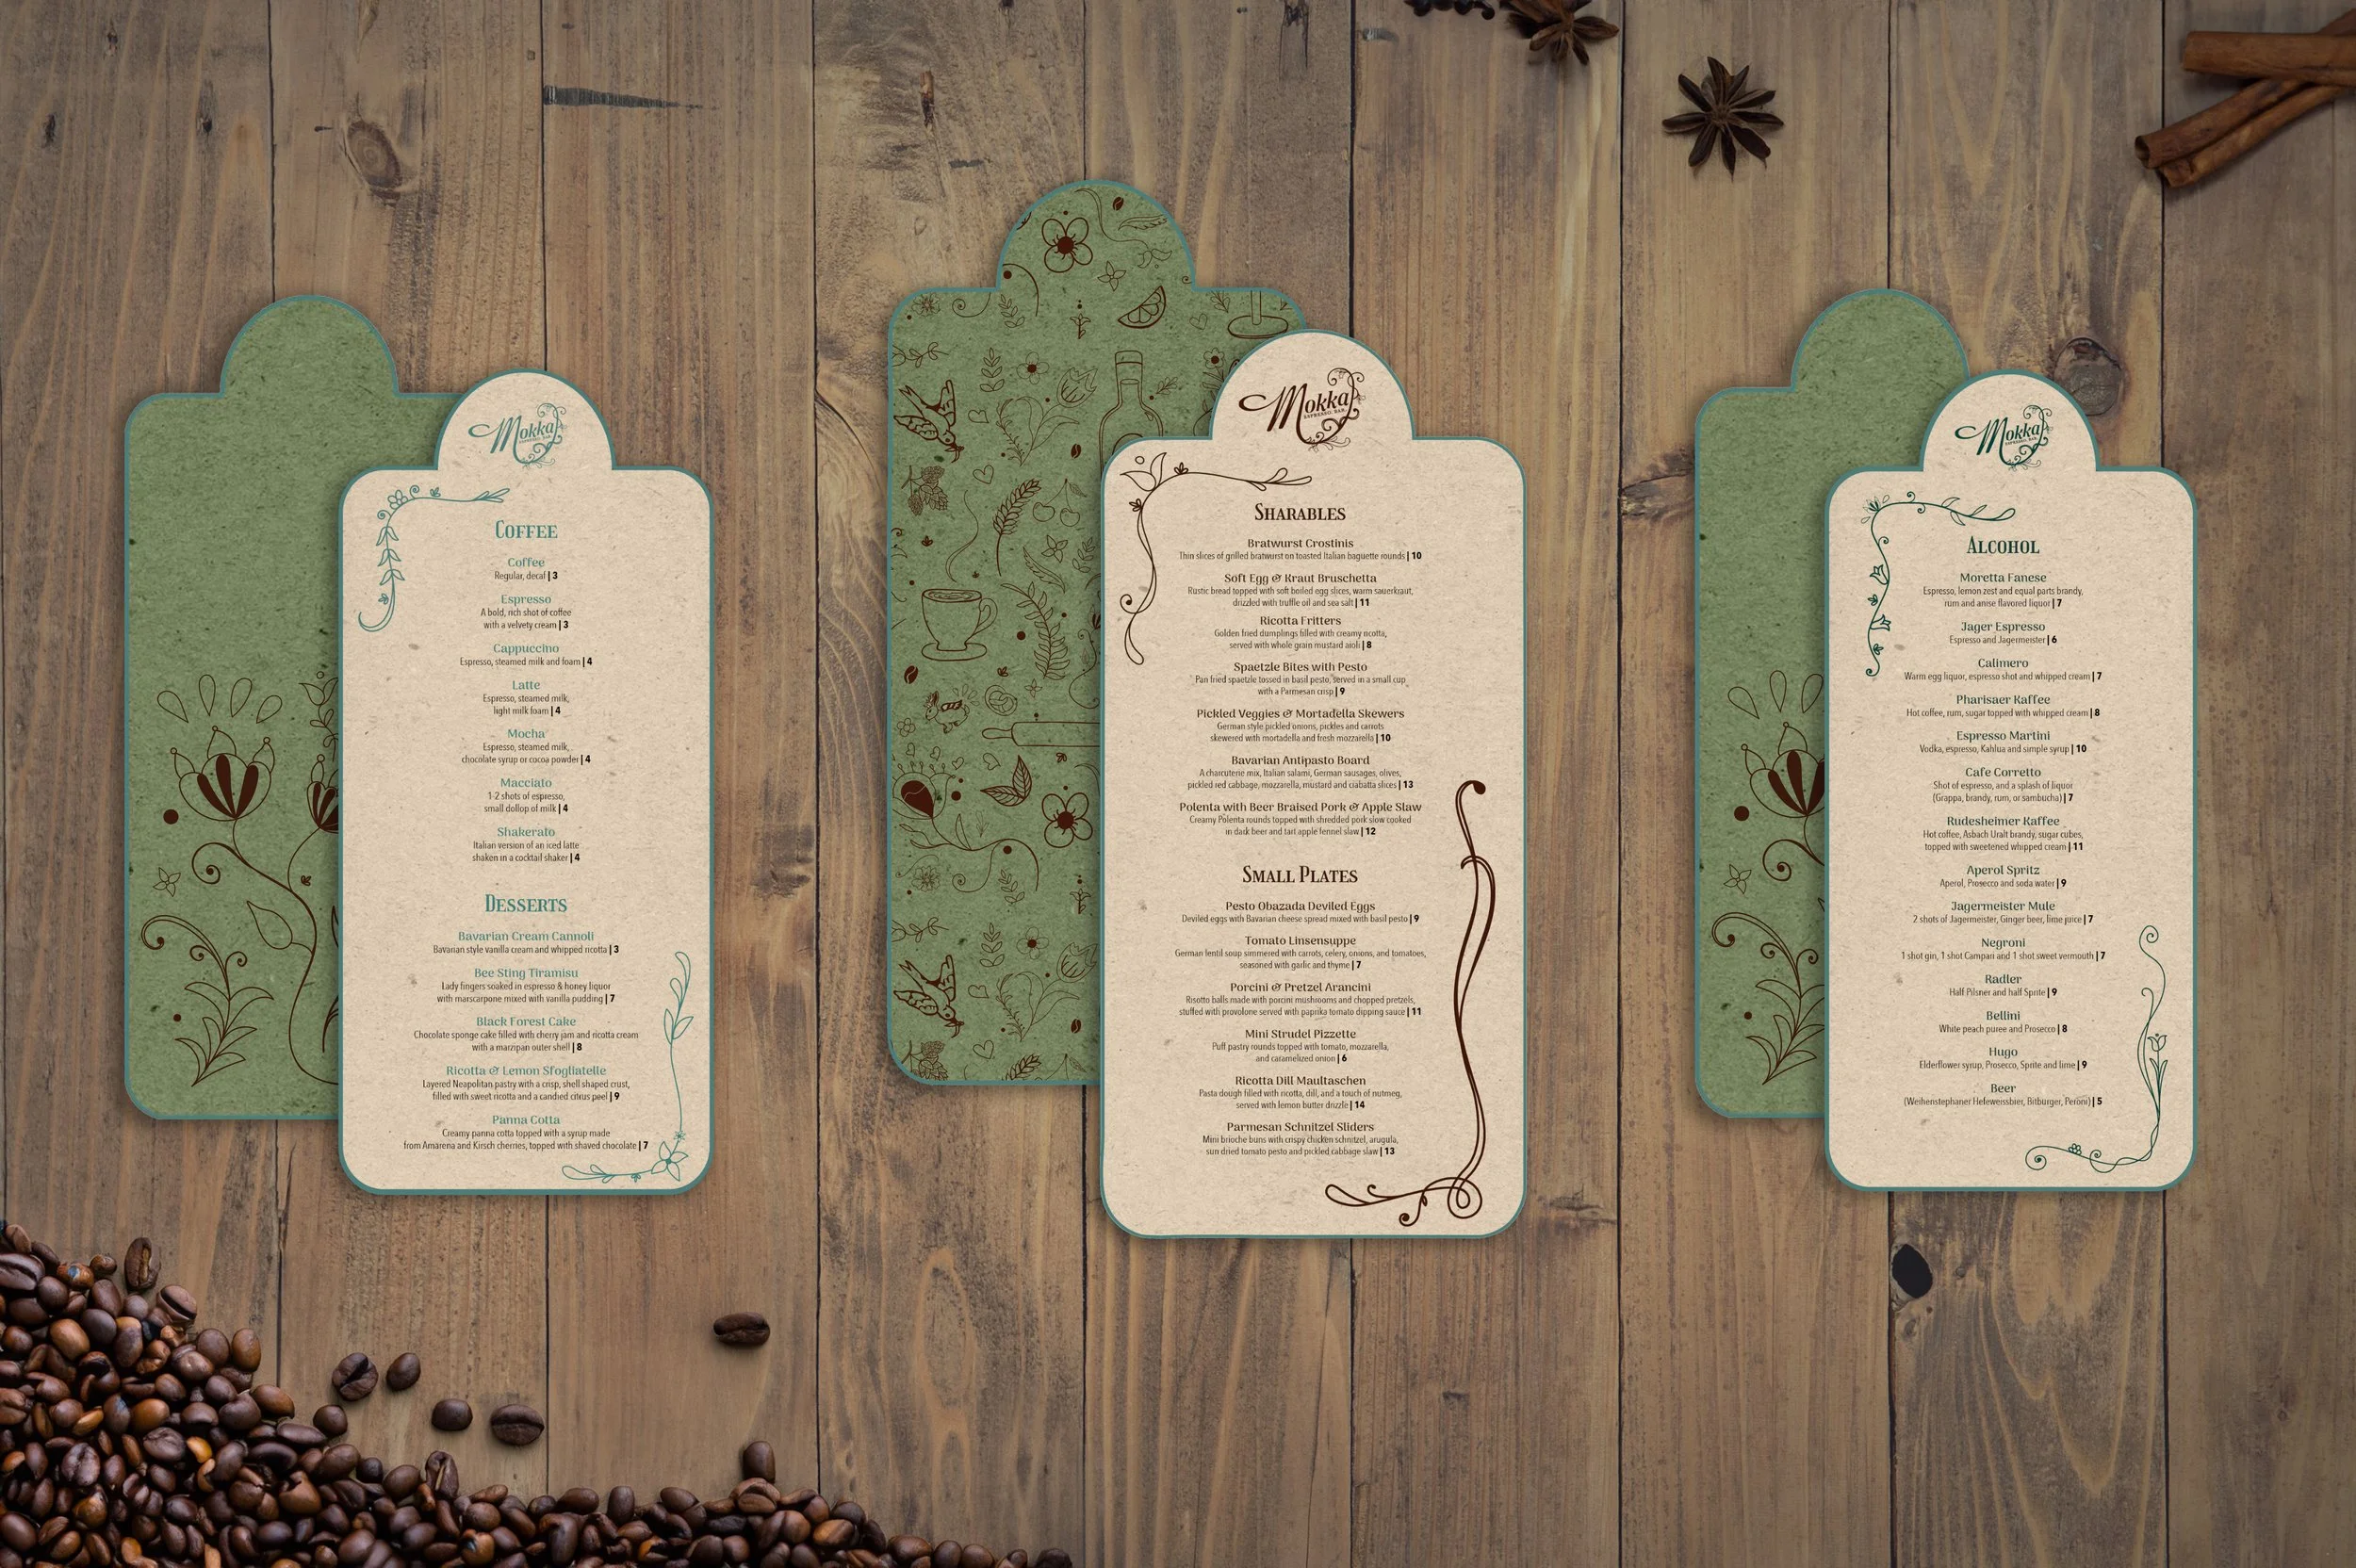 Mokka
ESPRESSO BAR
COFFEE
Coffee
Regular, decaf | 3
Espresso
A bold, rich shot of coffee
with a velvety cream | 3
Cappuccino
Espresso, steamed milk and foam | 4
Latte
Espresso, steamed milk,
light milk foam | 4
Mocha
Espresso, steamed milk,
chocolate syrup or cocoa powder | 4
Macciato
1-2 shots of espresso,
small dollop of milk | 4
Shakerato
Italian version of an iced latte
shaken in a cocktail shaker | 4
DESSERTS
Bavarian Cream Cannoli
Bavarian style vanilla cream and whipped ricotta | 3
Bee Sting Tiramisu
Lady fingers soaked in espresso & honey liquor
with marscarpone mixed with vanilla pudding | 7
Black Forest Cake
Chocolate sponge cake filled with cherry jam and ricotta cream
with a marzipan outer shell | 8
Ricotta & Lemon Sfogliatelle
Layered Neapolitan pastry with a crisp, shell shaped crust,
filled with sweet ricotta and a candied citrus peel | 9
Panna Cotta
Creamy panna cotta topped with a syrup made
from Amarena and Kirsch cherries, topped with shaved chocolate | 7
Mokka
ESPRESSO BAR
SHARABLES
Bratwurst Crostinis
Thin slices of grilled bratwurst on toasted Italian baguette rounds | 10
Soft Egg & Kraut Bruschetta
Rustic bread topped with soft boiled egg slices, warm sauerkraut,
drizzled with truffle oil and sea salt | 11
Ricotta Fritters
Golden fried dumplings filled with creamy ricotta,
served with whole grain mustard aioli | 8
Spaetzle Bites with Pesto
Pan fried spaetzle tossed in basil pesto, served in a small cup
with a Parmesan crisp | 9
Pickled Veggies & Mortadella Skewers
German style pickled onions, pickles and carrots
skewered with mortadella and fresh mozzarella | 10
Bavarian Antipasto Board
A charcuterie mix, Italian salami, German sausages, olives,
pickled red cabbage, mozzarella, mustard and ciabatta slices | 13
Polenta with Beer Braised Pork & Apple Slaw
Creamy Polenta rounds topped with shredded pork slow cooked
in dark beer and tart apple fennel slaw | 12
SMALL PLATES
Pesto Obazada Deviled Eggs
Deviled eggs with Bavarian cheese spread mixed with basil pesto | 9
Tomato Linsensuppe
German lentil soup simmered with carrots, celery, onions, and tomatoes,
seasoned with garlic and thyme | 7
Porcini & Pretzel Arancini
Risotto balls made with porcini mushrooms and chopped pretzels,
stuffed with provolone served with paprika tomato dipping sauce | 11
Mini Strudel Pizzette
Puff pastry rounds topped with tomato, mozzarella,
and caramelized onion | 6
Ricotta Dill Maultaschen
Pasta dough filled with ricotta, dill, and a touch of nutmeg,
served with lemon butter drizzle | 14
Parmesan Schnitzel Sliders
Mini brioche buns with crispy chicken schnitzel, arugula,
sun dried tomato pesto and pickled cabbage slaw | 13
Mokka
ESPRESSO BAR
ALCOHOL
Moretta Fanese
Espresso, lemon zest and equal parts brandy,
rum and anise flavored liquor | 7
Jager Espresso
Espresso and Jagermeister | 6
Calimero
Warm egg liquor, espresso shot and whipped cream | 7
Pharisaer Kaffee
Hot coffee, rum, sugar topped with whipped cream | 8
Espresso Martini
Vodka, espresso, Kahlua and simple syrup | 10
Cafe Corretto
Shot of espresso, and a splash of liquor
(Grappa, brandy, rum, or sambucha) | 7
Rudesheimer Kaffee
Hot coffee, Asbach Uralt brandy, sugar cubes,
topped with sweetened whipped cream | 11
Aperol Spritz
Aperol, Prosecco and soda water | 9
Jagermeister Mule
2 shots of Jagermeister, Ginger beer, lime juice | 7
Negroni
1 shot gin, 1 shot Campari and 1 shot sweet vermouth | 7
Radler
Half Pilsner and half Sprite | 9
Bellini
White peach puree and Prosecco | 8
Hugo
Elderflower syrup, Prosecco, Sprite and lime | 9
Beer
(Weihenstephaner Hefeweissbier, Bitburger, Peroni) | 5